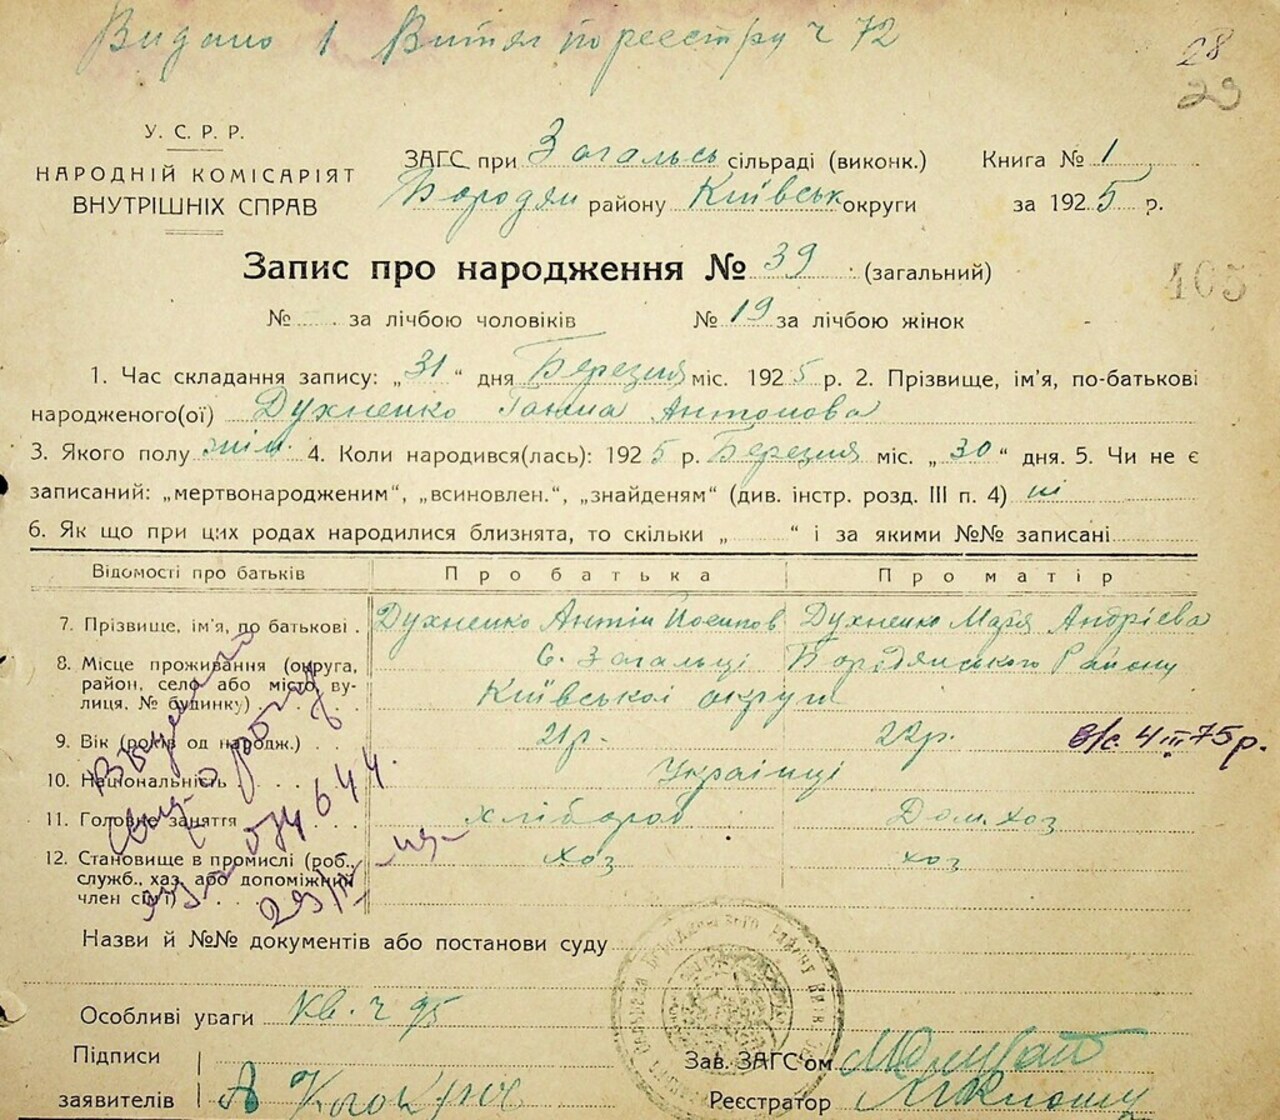 Видано 1 Витяг по реєстру ч 72
28
29
У. С. Р. Р.
НАРОДНІЙ КОМІСАРІЯТ
ВНУТРІШНІХ СПРАВ
ЗАГС при Загальсь сільраді (виконк.) Книга № 1
Бородян району Київськ округи за 1925 р.
Запис про народження № 39 (загальний)
405
№ за лічбою чоловіків № 19 за лічбою жінок
1. Час складання запису: „31“ дня Березня міс. 1925 р. 2. Прізвище, ім'я, по-батькові
народженого(ої) Духненко Ганна Антонова
3. Якого полу жін. 4. Коли народився(лась): 1925 р. Березня міс. „30“ дня. 5. Чи не є
записаний: „мертвонародженим“, „всиновлен.“, „знайденям“ (див. інстр. розд. III п. 4) ні
6. Як що при цих родах народилися близнята, то скільки „ “ і за якими №№ записані
Відомості про батьків Про батька Про матір
7. Прізвище, ім'я, по батькові . Духненко Антін Йосипов Духненко Марія Андрієва
8. Місце проживання (округа, С. Загальці Бородянського Району
район, село або місто, ву-
лиця, № будинку) . . . Київської округи
9. Вік (років од народж.) . . 21р. 22р. в/с. 4 III 75 р.
10. Національність . . . Українці
11. Головне заняття . . . хлібороб Дом. хоз
12. Становище в промислі (роб., хоз хоз
служб., хаз. або допоміжний
член сім'ї) . . . .
574644.
Назви й №№ документів або постанови суду
Особливі уваги Кв. ч 95
Підписи
заявителів
Зав. ЗАГС'ом
Реєстратор